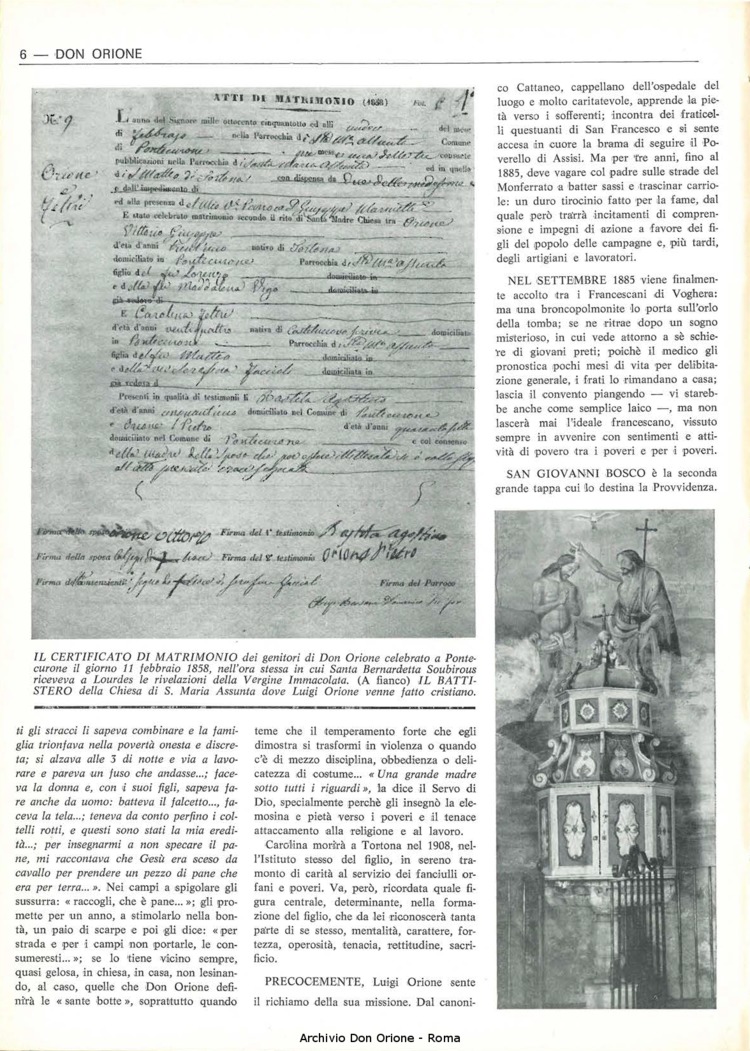 6 — DON ORIONE
ATTI DI MATRIMONIO (1858)
Fol.
№ 9
Orione
e
Feltri
L'anno del Signore mille ottocento cinquantotto ed alli undici del mese
di Febbrajo nella Parrocchia di Sta Ma Assunta Comune
di Pontecurone
pubblicazioni nella Parrocchia di Santa Maria Assunta ed in quella
di S. Matteo di Tortona con dispensa da
e dall'impedimento di
ed alla presenza
E stato celebrato matrimonio secondo il rito di Santa Madre Chiesa tra Orione
Vittorio Giuseppe
d'età d'anni nativo di Tortona
domiciliato in Pontecurone Parrocchia di Sta Ma Assunta
figlio del fu Lorenzo domiciliato in
e della fu Maddalena domiciliata in
già vedovo di
E Carolina Feltri
d'età d'anni ventiquattro nativa di domiciliata
in Pontecurone Parrocchia di Sta Ma Assunta
figlia del fu Matteo domiciliato in
e della Serafina domiciliata in
già vedova di
Presenti in qualità di testimonii li Battista Agostino
d'età d'anni cinquantuno domiciliato nel Comune di Pontecurone
e Orione Pietro d'età d'anni
domiciliato nel Comune di Pontecurone e col consenso
della madre della sposa che per essere illetterata
Firma dello sposo Orione Vittorio Firma del 1° testimonio Battista Agostino
Firma della sposa Firma del 2° testimonio Orione Pietro
Firma Serafina Firma del Parroco
IL CERTIFICATO DI MATRIMONIO dei genitori di Don Orione celebrato a Ponte-
curone il giorno 11 febbraio 1858, nell'ora stessa in cui Santa Bernardetta Soubirous
riceveva a Lourdes le rivelazioni della Vergine Immacolata. (A fianco) IL BATTI-
STERO della Chiesa di S. Maria Assunta dove Luigi Orione venne fatto cristiano.
ti gli stracci li sapeva combinare e la fami-
glia trionfava nella povertà onesta e discre-
ta; si alzava alle 3 di notte e via a lavo-
rare e pareva un fuso che andasse...; face-
va la donna e, con i suoi figli, sapeva fa-
re anche da uomo: batteva il falcetto..., fa-
ceva la tela...; teneva da conto perfino i col-
telli rotti, e questi sono stati la mia eredi-
tà...; per insegnarmi a non specare il pa-
ne, mi raccontava che Gesù era sceso da
cavallo per prendere un pezzo di pane che
era per terra... ». Nei campi a spigolare gli
sussurra: « raccogli, che è pane... »; gli pro-
mette per un anno, a stimolarlo nella bon-
tà, un paio di scarpe e poi gli dice: « per
strada e per i campi non portarle, le con-
sumeresti... »; se lo tiene vicino sempre,
quasi gelosa, in chiesa, in casa, non lesinan-
do, al caso, quelle che Don Orione defi-
nirà le « sante botte », soprattutto quando
teme che il temperamento forte che egli
dimostra si trasformi in violenza o quando
c'è di mezzo disciplina, obbedienza o deli-
catezza di costume... « Una grande madre
sotto tutti i riguardi », la dice il Servo di
Dio, specialmente perchè gli insegnò la ele-
mosina e pietà verso i poveri e il tenace
attaccamento alla religione e al lavoro.
Carolina morirà a Tortona nel 1908, nel-
l'Istituto stesso del figlio, in sereno tra-
monto di carità al servizio dei fanciulli or-
fani e poveri. Va, però, ricordata quale fi-
gura centrale, determinante, nella forma-
zione del figlio, che da lei riconoscerà tanta
parte di se stesso, mentalità, carattere, for-
tezza, operosità, tenacia, rettitudine, sacri-
ficio.
PRECOCEMENTE, Luigi Orione sente
il richiamo della sua missione. Dal canoni-
co Cattaneo, cappellano dell'ospedale del
luogo e molto caritatevole, apprende la pie-
tà verso i sofferenti; incontra dei fraticel-
li questuanti di San Francesco e si sente
accesa in cuore la brama di seguire il Po-
verello di Assisi. Ma per tre anni, fino al
1885, deve vagare col padre sulle strade del
Monferrato a batter sassi e trascinar carrio-
le: un duro tirocinio fatto per la fame, dal
quale però trarrà incitamenti di compren-
sione e impegni di azione a favore dei fi-
gli del popolo delle campagne e, più tardi,
degli artigiani e lavoratori.
NEL SETTEMBRE 1885 viene finalmen-
te accolto tra i Francescani di Voghera:
ma una broncopolmonite lo porta sull'orlo
della tomba; se ne ritrae dopo un sogno
misterioso, in cui vede attorno a sè schie-
re di giovani preti; poichè il medico gli
pronostica pochi mesi di vita per delibita-
zione generale, i frati lo rimandano a casa;
lascia il convento piangendo — vi stareb-
be anche come semplice laico —, ma non
lascerà mai l'ideale francescano, vissuto
sempre in avvenire con sentimenti e atti-
vità di povero tra i poveri e per i poveri.
SAN GIOVANNI BOSCO è la seconda
grande tappa cui lo destina la Provvidenza.
Archivio Don Orione - Roma